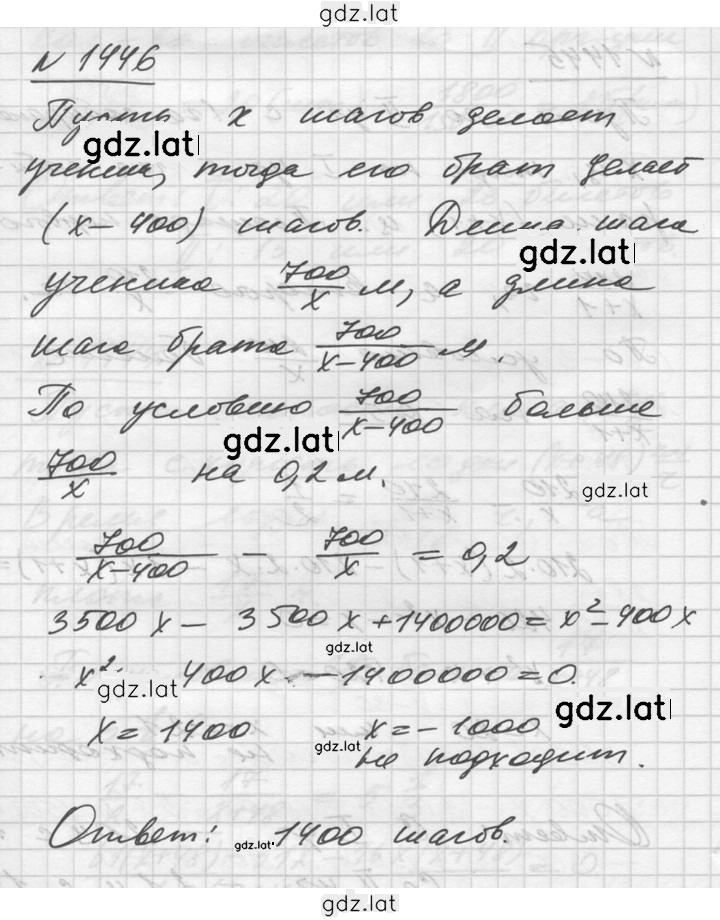 gdz.lat
№ 1446
Пусть x шагов делает
gdz.lat
ученик, тогда его брат делает
(x-400) шагов. Длина шага
gdz.lat
ученика 700/x м, а длина
шага брата 700/(x-400) м.
По условию 700/(x-400) больше
gdz.lat
700/x на 0,2 м.
gdz.lat
700/(x-400) - 700/x = 0,2
3500x - 3500x + 1400000 = x² - 400x
gdz.lat
x² - 400x - 1400000 = 0.
gdz.lat
gdz.lat
x = 1400 x = -1000
gdz.lat
не подходит.
Ответ: 1400 шагов.
gdz.lat
gdz.lat